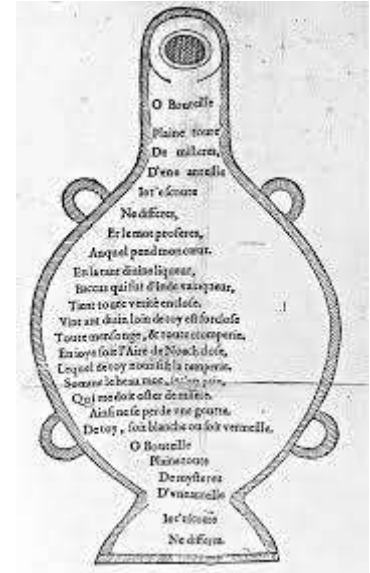 O Bouteille
Plaine toute
De misteres,
D'vne aureille
Ie t'escoute
Ne differes,
Et le mot proferes,
Auquel pend mon cœur.
En la tant diuine liqueur,
Baccus qui fut d'Inde vainqueur,
Tient toute verité enclose.
Vin tant diuin loin de toy est forclose
Toute mensonge, & toute tromperie,
En ioye soit l'Aire de Noach close,
Lequel de toy nous fist la temperie.
Somme le beau mot, ie t'en prie,
Qui me doit oster de misere.
Ainsi ne se perde vne goutte.
De toy, soit blanche ou soit vermeille.
O Bouteille
Plaine toute
De mysteres
D'vne aureille
Ie t'escoute
Ne differes.